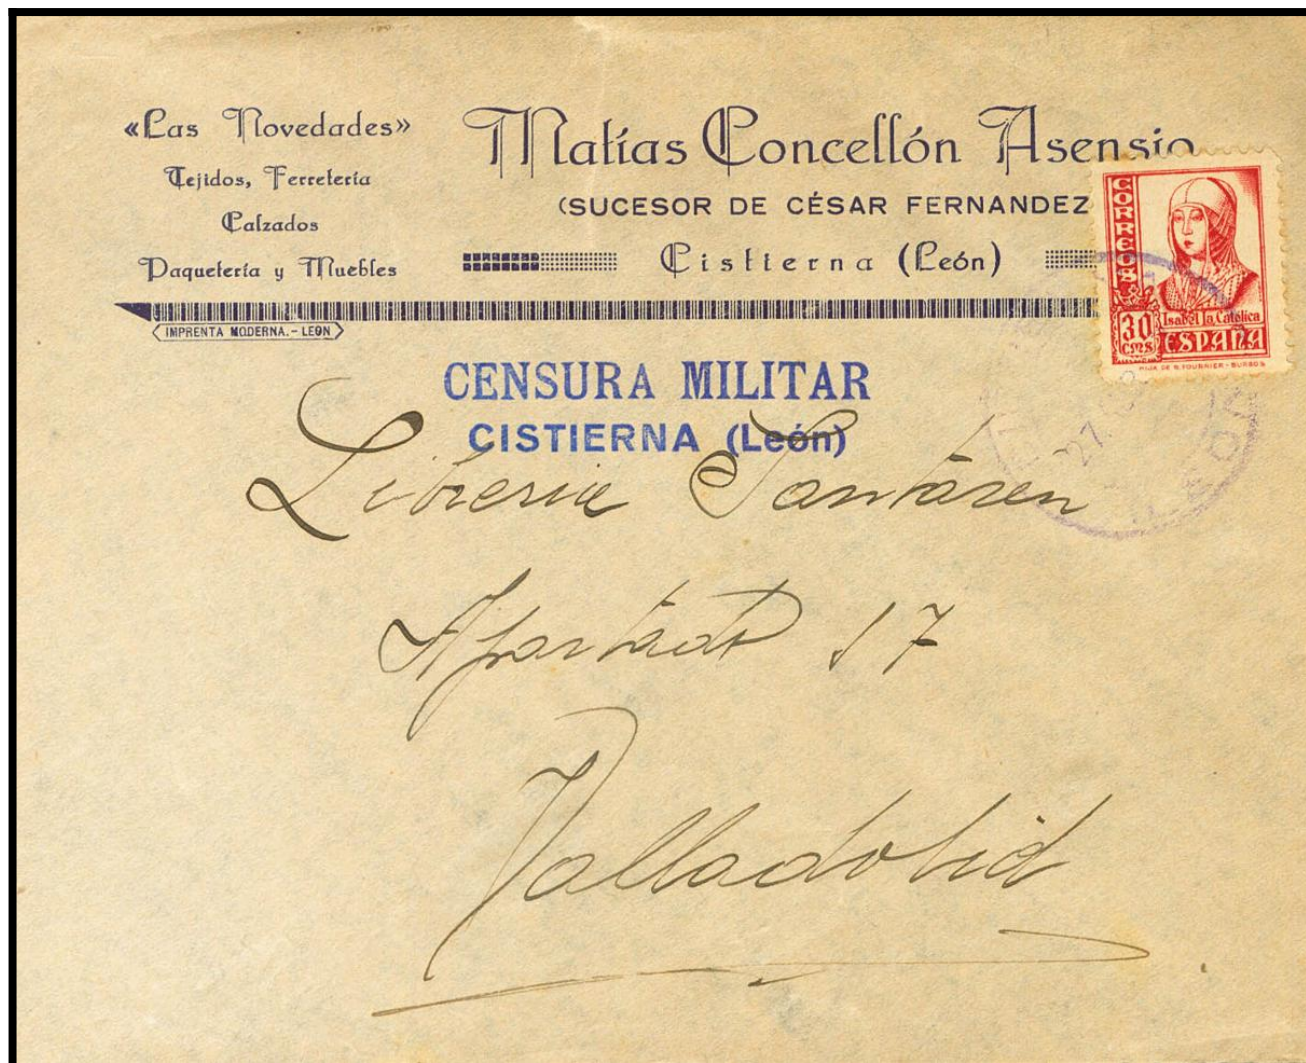 «Las Novedades»
Tejidos, Ferretería
Calzados
Paquetería y Muebles
Matías Concellón Asensio
(SUCESOR DE CÉSAR FERNANDEZ
Cistierna (León)
IMPRENTA MODERNA.-LEON
CORREOS
30
CMS
Isabel la Católica
ESPAÑA
HIJA DE B. FOURNIER - BURGOS
CENSURA MILITAR
CISTIERNA (León)
27
Libreria Santaren
Apartado 17
Valladolid